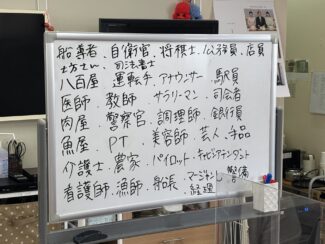 船導者、自衛官、将棋士、公務員、店員
司法書士
八百屋 運転手 アナウンサー 駅員
医師、教師 サラリーマン 司会者
肉屋、警察官、調理師、銀行員
魚屋 PT、美容師、芸人、手品
介護士、農家、パイロット、キャビンアテンダント
看護師、漁師、船長、マージャン 警備
経理